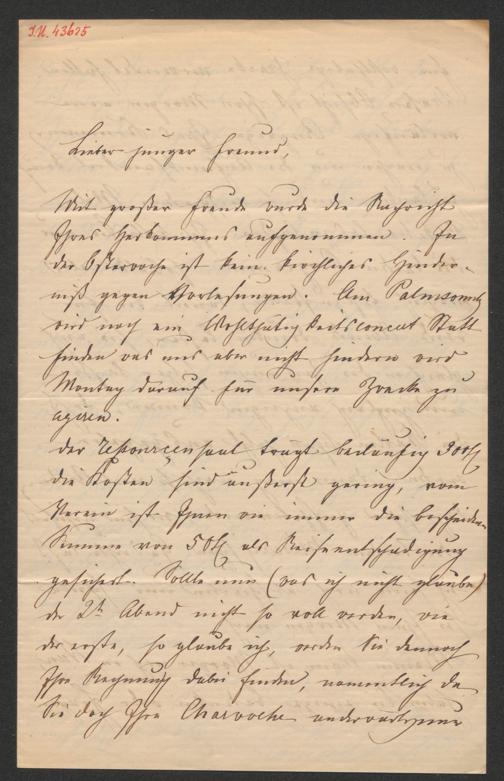 I.N. 43625
Lieber junger Freund,
Mit großer Freude wurde die Nachricht
Ihres Herkommens aufgenommen. In
der Osterwoche ist kein kirchliches Hinder-
niß gegen Vorlesungen. Am Palmsonntag
wird noch ein Wohlthätigkeitsconcert Statt
finden was uns aber nicht hindern wird
Montag darauf für unsere Zwecke zu
agiren.
Der Ressourcensaal trägt beiläufig 300 fl
die Kosten sind äußerst gering, vom
Verein ist Ihnen wie immer die bescheidene
Summe von 50 fl als Reiseentschädigung
gesichert. Sollte nun (was ich nicht glaube)
der 2te Abend nicht so voll werden, wie
der erste, so glaube ich, werden Sie dennoch
Ihre Rechnung dabei finden, namentlich da
Sie doch Ihre Charwoche